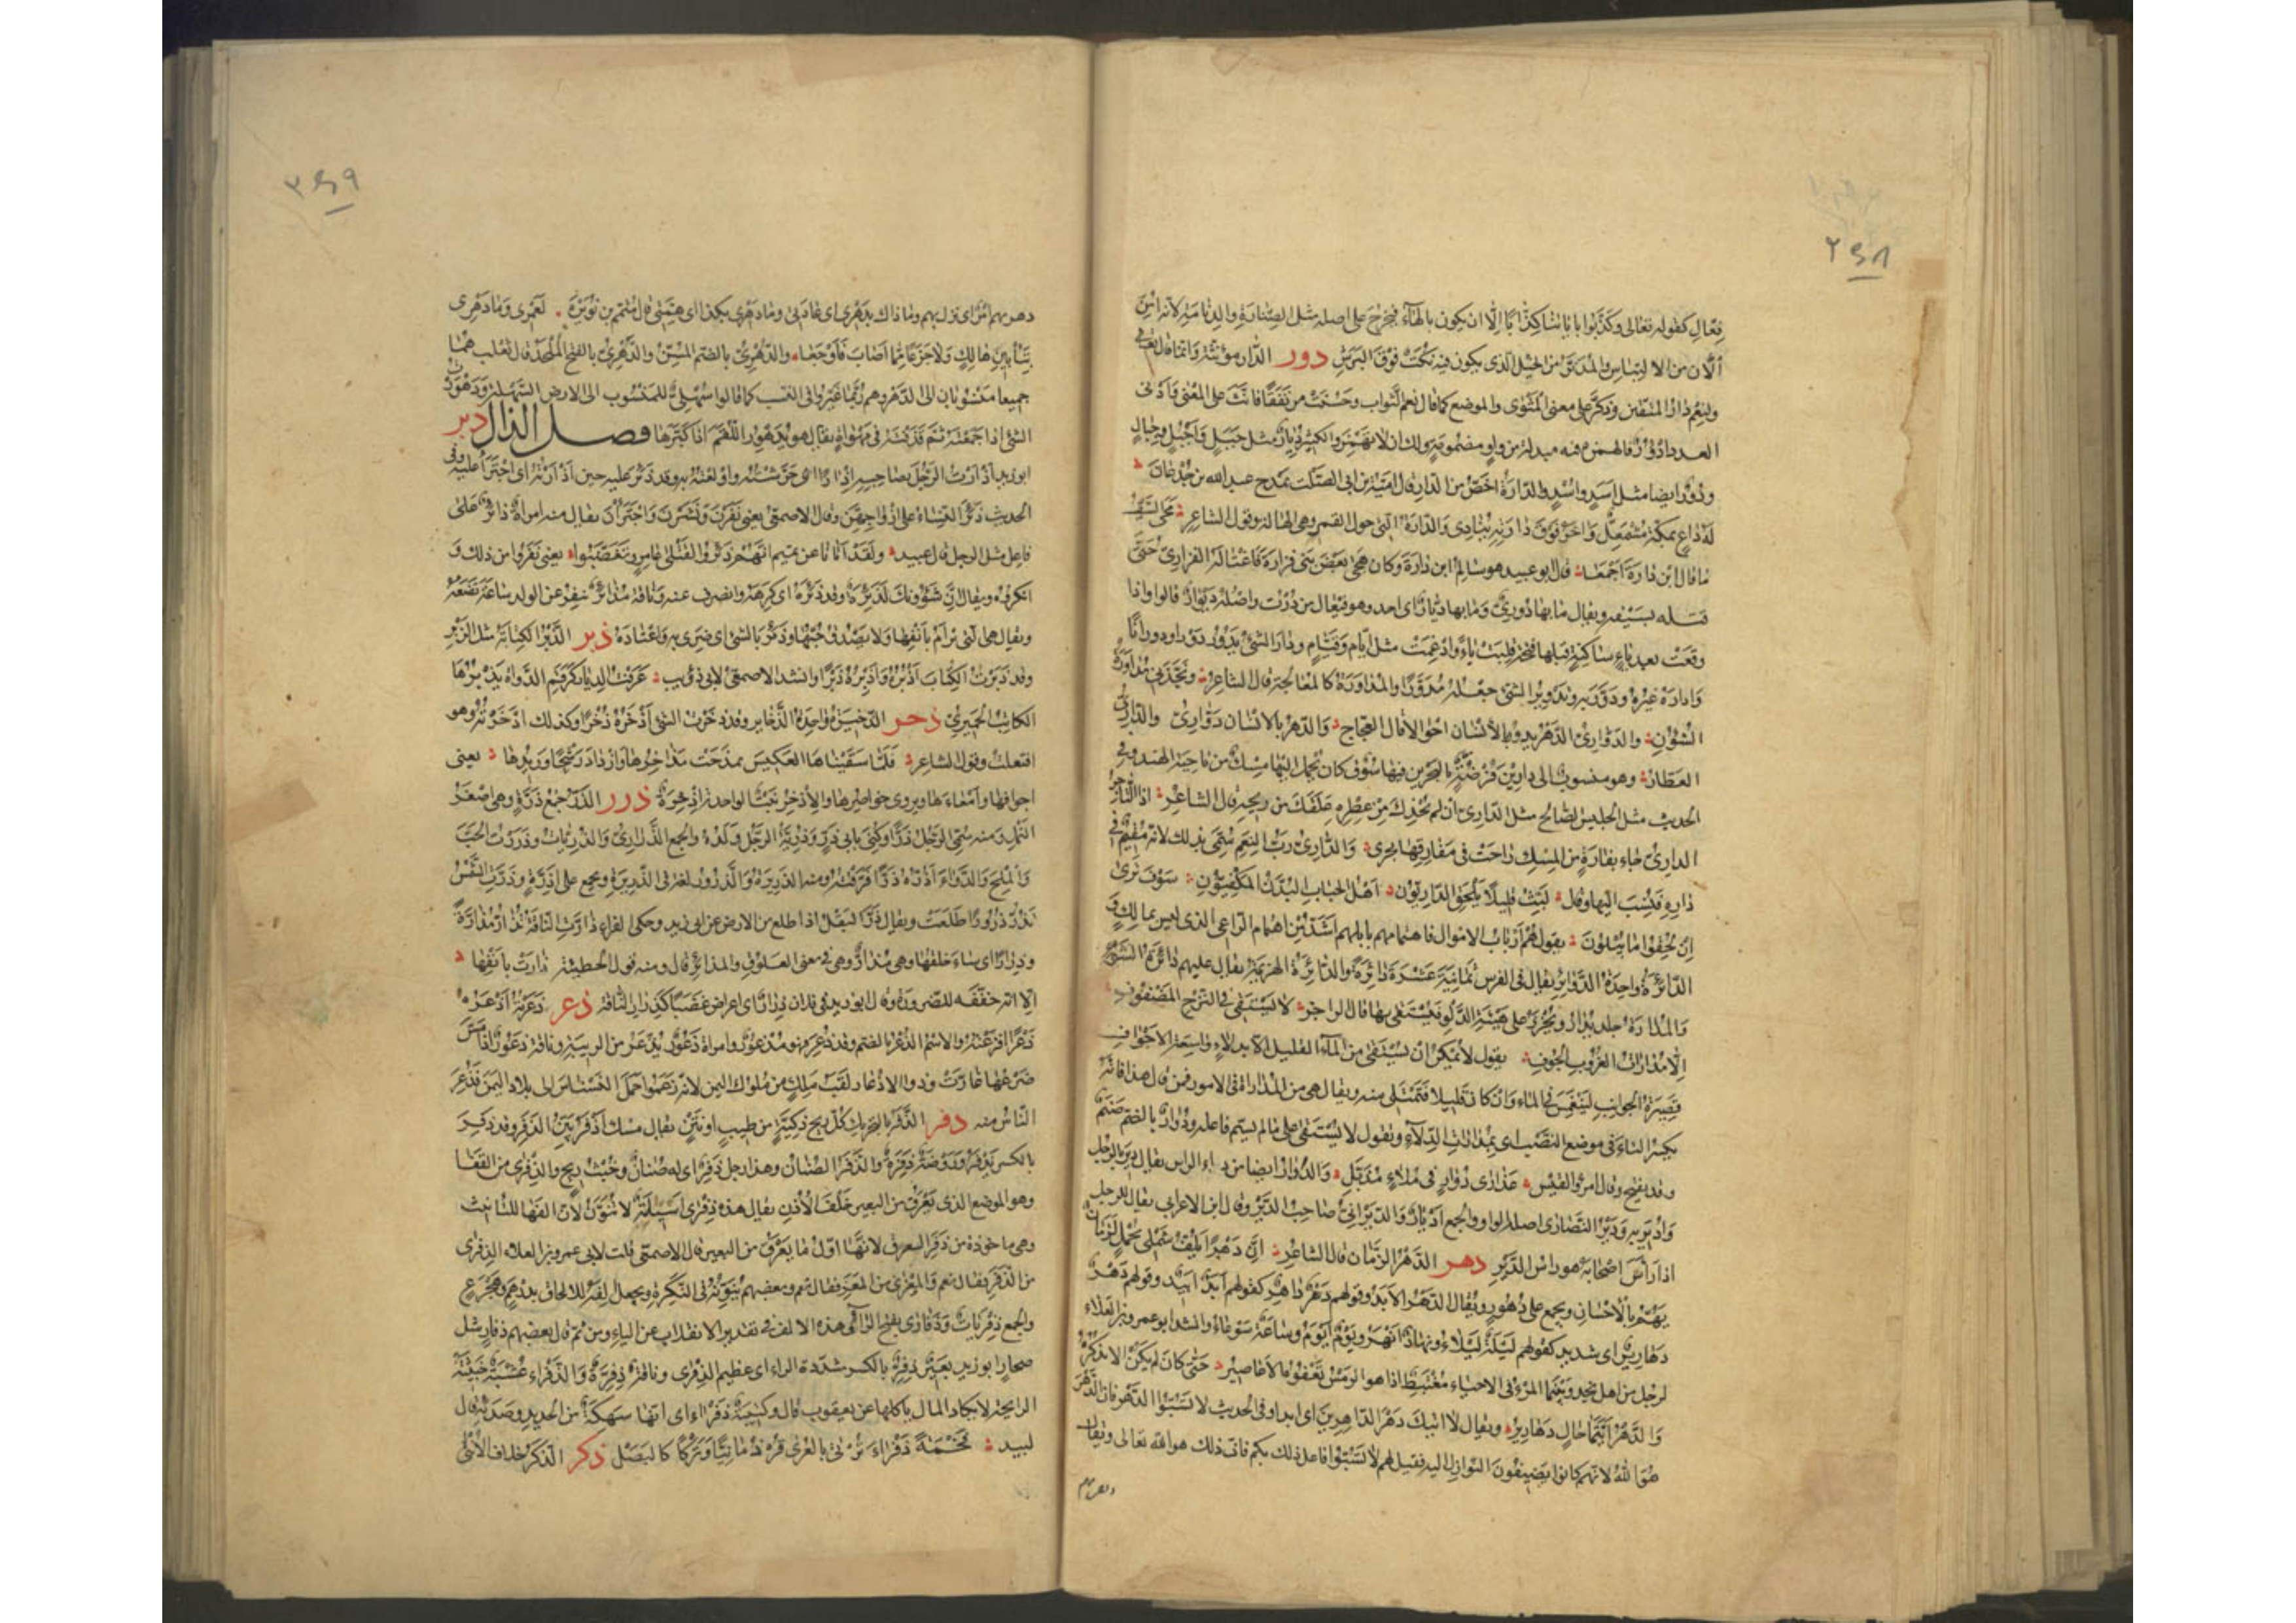 ٢٤٨
فِعَّالٍ كقوله تعالى وكذّبوا باياتنا كِذّابًا الّا ان يكون بالهاء فيخرج على اصله مثل الصِنّارَةِ والدِنّامَةِ لانه امن
الآن من الالتباس والمُدَنَّرُ من الخيل الذى يكون فيه نُكَتٌ فوق البَرَشِ دور الدار مؤنثة وانما قال تعالى
ولنعم دارُ المتقين وذكّر على معنى المثوى والموضع كما قال نعم الثواب وحسنت مرتفقا فانّث على المعنى وادنى
العدد ادْؤُرٌ فالهمزة فيه مبدلة من واو مضمومة ولك ان لا تهمز والكثير دِيارٌ مثل جبل واجبل وجبال
ودُورٌ ايضا مثل اسد واُسْدٍ والدارة اخصّ من الدار قال امية بن ابى الصلت يمدح عبد الله بن جُدْعان
له داعٍ بمكة مشمعلّ وآخر فوق دارته ينادى والدارة التى حول القمر وهى الهالة وقول الشاعر محى السيف
ما قال ابن دارة اجمعا قال ابو عبيد هو سالم ابن دارة وكان هجى بعض بنى فزارة فاغتاله الفزارى حتى
قتله بسيفه ويقال ما بها دُورِىٌّ وما بها دَيّارٌ اى احد وهو فيعال من دُرْت واصله ديوار قالوا واذا
وقعت بعد ياءٍ ساكنةٍ قبلها فتحة قلبت ياءً وادغمت مثل ايّام وقيّام ودار الشئ يدور دورا ودورانًا
وادارهُ غيره ودوّر به وتدوير الشئ جعله مدوّرًا والمداورة كالمعالجة قال الشاعر ونجّذنى مداورة
الشؤون والدوّارىّ الدهر يدور بالانسان احوالا قال العجاج والدهر بالانسان دوّارىّ والدارىّ
العطّار وهو منسوب الى دارين فرضة بالبحرين فيها سوق كان يحمل اليها مسك من ناحية الهند وفى
الحديث مثل الجليس الصالح مثل الدارىّ ان لم يحذك من عطره علقك من ريحه قال الشاعر اذا التاجر
الدارىّ جاء بفارةٍ من المسك راحت فى مفارقها تجرى والدارىّ ربّ النعم سمّى بذلك لانه مقيم فى
داره فنسب اليها وقال لبّث قليلًا يلحق الداريّون اهل الجباب البدّن المكفيّون سوف ترى
ان لحقوا ما يبلون يقول هم ارباب الاموال فاهتمامهم بابلهم اشدّ من اهتمام الراعى الذى ليس بمالك و
الدائرة واحدة الدوائر يقال فى الفرس ثمانية عشرة دائرة والدائرة الهزيمة يقال عليهم دائرة السوء
والمدارة جلد يدار ويخرز على هيئة الدلو فيستقى بها قال الراجز لا يستقى فى النزح المضفوف
الّا مدارات الغروب الجوف يقول لا يمكن ان يستقى من الماء القليل الا بدلاء واسعة الاجواف
قصيرة الجوانب لتنغمس فى الماء وان كان قليلا فتمتلى منه ويقال هى من المداراة فى الامور فمن قال هذا فانه
بكسر التاء فى موضع النصب اى بمداراة الدلاء ويقول لا يستقى على ما لم يسمّ فاعله ودُوار بالضم صنم
وقد يفتح وقال امرؤ القيس عذارى دوارٍ فى ملاءٍ مذيّل والدُوار ايضا من دوار الراس يقال دير بالرجل
وادير به ودير النصارى اصله الواو والجمع اديار والديرانىّ صاحب الدير وقال ابن الاعرابى يقال للرجل
اذا رأس اصحابه هو راس الدير دهر الدهر الزمان قال الشاعر انّ دهرًا يلفّ شملى بجملٍ لزمان
يهمّ بالاحسان ويجمع على دُهورٍ ويقال الدهر الابد وقولهم دهرٌ داهرٌ كقولهم ابدٌ ابيدٌ وقولهم دهرٌ
دهاريرٌ اى شديد كقولهم ليلةٌ ليلاء ونهارٌ انهر ويومٌ ايوم وساعةٌ سوعاء وانشد ابو عمرو بن العلاء
لرجل من اهل نجد وبينما المرء فى الاحياء مغتبطٌ اذا هو الرمس تعفوه الاعاصير حتى كان لم يكن الا تذكّره
والدهر ايّتما حالٍ دهارير ويقال لا آتيك دهر الداهرين اى ابدا وفى الحديث لا تسبّوا الدهر فانّ الدهر
هو الله لانهم كانوا يضيفون النوازل اليه فقيل لهم لا تسبّوا فاعل ذلك بكم فانّ ذلك هو الله تعالى ويقال
دهرهم
٣٤٩
دهر بهم امرٌ اى نزل بهم وما ذاك بدهرى اى عادتى وما دهرى بكذا اى همّتى قال متمم بن نويرة لعمرى وما دهرى
بتأبين هالكٍ ولا جزعًا ممّا اصاب فاوجعا والدُهرىّ بالضم المسنّ والدَهرىّ بالفتح الملحد قال ثعلب هما
جميعا منسوبان الى الدهر وهم ربّما غيّروا فى النسب كما قالوا سُهْلىٌّ للمنسوب الى الارض السهلة ودهورت
الشئ اذا جمعته ثم قذفته فى مهواةٍ يقال هو يدهور اللقم اذا كبّرها فصل الذال ذير
ابو زيد اذأرت الرجل بصاحبه اذآرًا اى حرّشته واولعته به وقد ذئر عليه حين اذأرته اى اجترأ عليه وفى
الحديث ذئر النساء على ازواجهنّ وقال الاصمعى يعنى نفرن ونشزن واجترأن يقال منه امراة ذائرٌ على
فاعل مثل الرجل قال عبيد ولقد اتانا عن تميم انّهم ذئروا لقتلى عامرٍ وتغضّبوا يعنى نفروا من ذلك و
انكروه ويقال انّ شؤونك لذئرة وقد ذئره اى كرهه وانصرف عنه وناقة مذائرٌ تنفر عن الولد ساعة تضعه
ويقال هى التى ترأم بانفها ولا يصدق حبّها وذئر بالشئ اى ضرى به واعتاده ذبر الذبر الكتابة مثل الزبر
وقد ذبرت الكتاب اذبُره واذبِره ذبرًا وانشد الاصمعى لابى ذؤيب عرفت الديار كرقم الدواة يذبرها
الكاتب الحميرىّ ذخر الذخيرة واحدة الذخاير وقد ذخرت الشئ اذخره ذخرًا وكذلك اذّخرته وهو
افتعلت وقول الشاعر فلمّا سقيناها العكيس تمذّحت مذاخرها وازداد رشحًا وريدها يعنى
اجوافها وامعاءها ويروى خواصرها والاذخر نبت الواحدة اذخرة ذرر الذرّ جمع ذرّة وهى اصغر
النمل ومنه سمّى الرجل ذرًّا وكنّى بابى ذرّ وذرّيّة الرجل ولده والجمع الذرارىّ والذرّيّات وذررت الحبّ
والملح والدواء اذرّه ذرًّا فرّقته ومنه الذريرة والذرور لغة فى الذريرة ويجمع على اذرّةٍ وذرّت الشمس
تذرّ ذرورًا طلعت ويقال ذرّ البقل اذا طلع من الارض عن ابى زيد وحكى الفراء ذارّت الناقة تذارّ مذارّةً
وذرارًا اى ساء خلقها وهى مذارّ وهى فى معنى العلوق والمذائر قال ومنه قول الحطيئة ذارت بانفها
الّا انه خففه للضرورة وقال ابو زيد فى فلان ذرارٌ اى اعراض غضبًا كذرار الناقة ذعر ذعرته اذعره
ذعرًا افزعته والاسم الذُعر بالضم وقد ذُعر فهو مذعور وامراة ذعورٌ تذعر من الريبة وناقة ذعورٌ اذا مسّ
ضرعها غارت وذو الاذعار لقب ملكٍ من ملوك اليمن لانه زعموا حمل النسناس الى بلاد اليمن فذعر
الناس منه ذفر الذفر بالتحريك كلّ ريح ذكيّةٍ من طيب او نتنٍ يقال مسك اذفر بيّن الذفر وقد ذفر
بالكسر يذفر وروضةٌ ذفرةٌ والذفر الصنان وهذا رجل ذفرٌ اى له صنان وخبث ريح والذفرى من القفا
وهو الموضع الذى يعرق من البعير خلف الاذن يقال هذه ذفرى اسيلةٌ لا تنوّن لانّ الفها للتانيث
وهى ماخوذة من ذفر العرق لانها اوّل ما يعرق من البعير قال الاصمعى قلت لابى عمرو بن العلاء الذفرى
من الذفر فقال نعم والمعزى من المعز فقال نعم وبعضهم ينوّنه فى النكرة ويجعل الفه للالحاق بدرهم وهجرع
والجمع ذفريات وذفارى بفتح الراء هذه الالف فى تقدير الانقلاب عن الياء ومن ثم قال بعضهم ذفارٍ مثل
صحارٍ ابو زيد بعيرٌ ذفرّ بالكسر مشدّدة الراء اى عظيم الذفرى وناقة ذفرّة والذفراء عشبة خبيثة
الرائحة لا يكاد المال ياكلها عن يعقوب قال وكتيبة ذفراء اى انها سهكة من الحديد وصدئه قال
لبيد فخمة ذفراء ترتى بالعرى قردمانيّا وتركا كالبصل ذكر الذكر خلاف الانثى